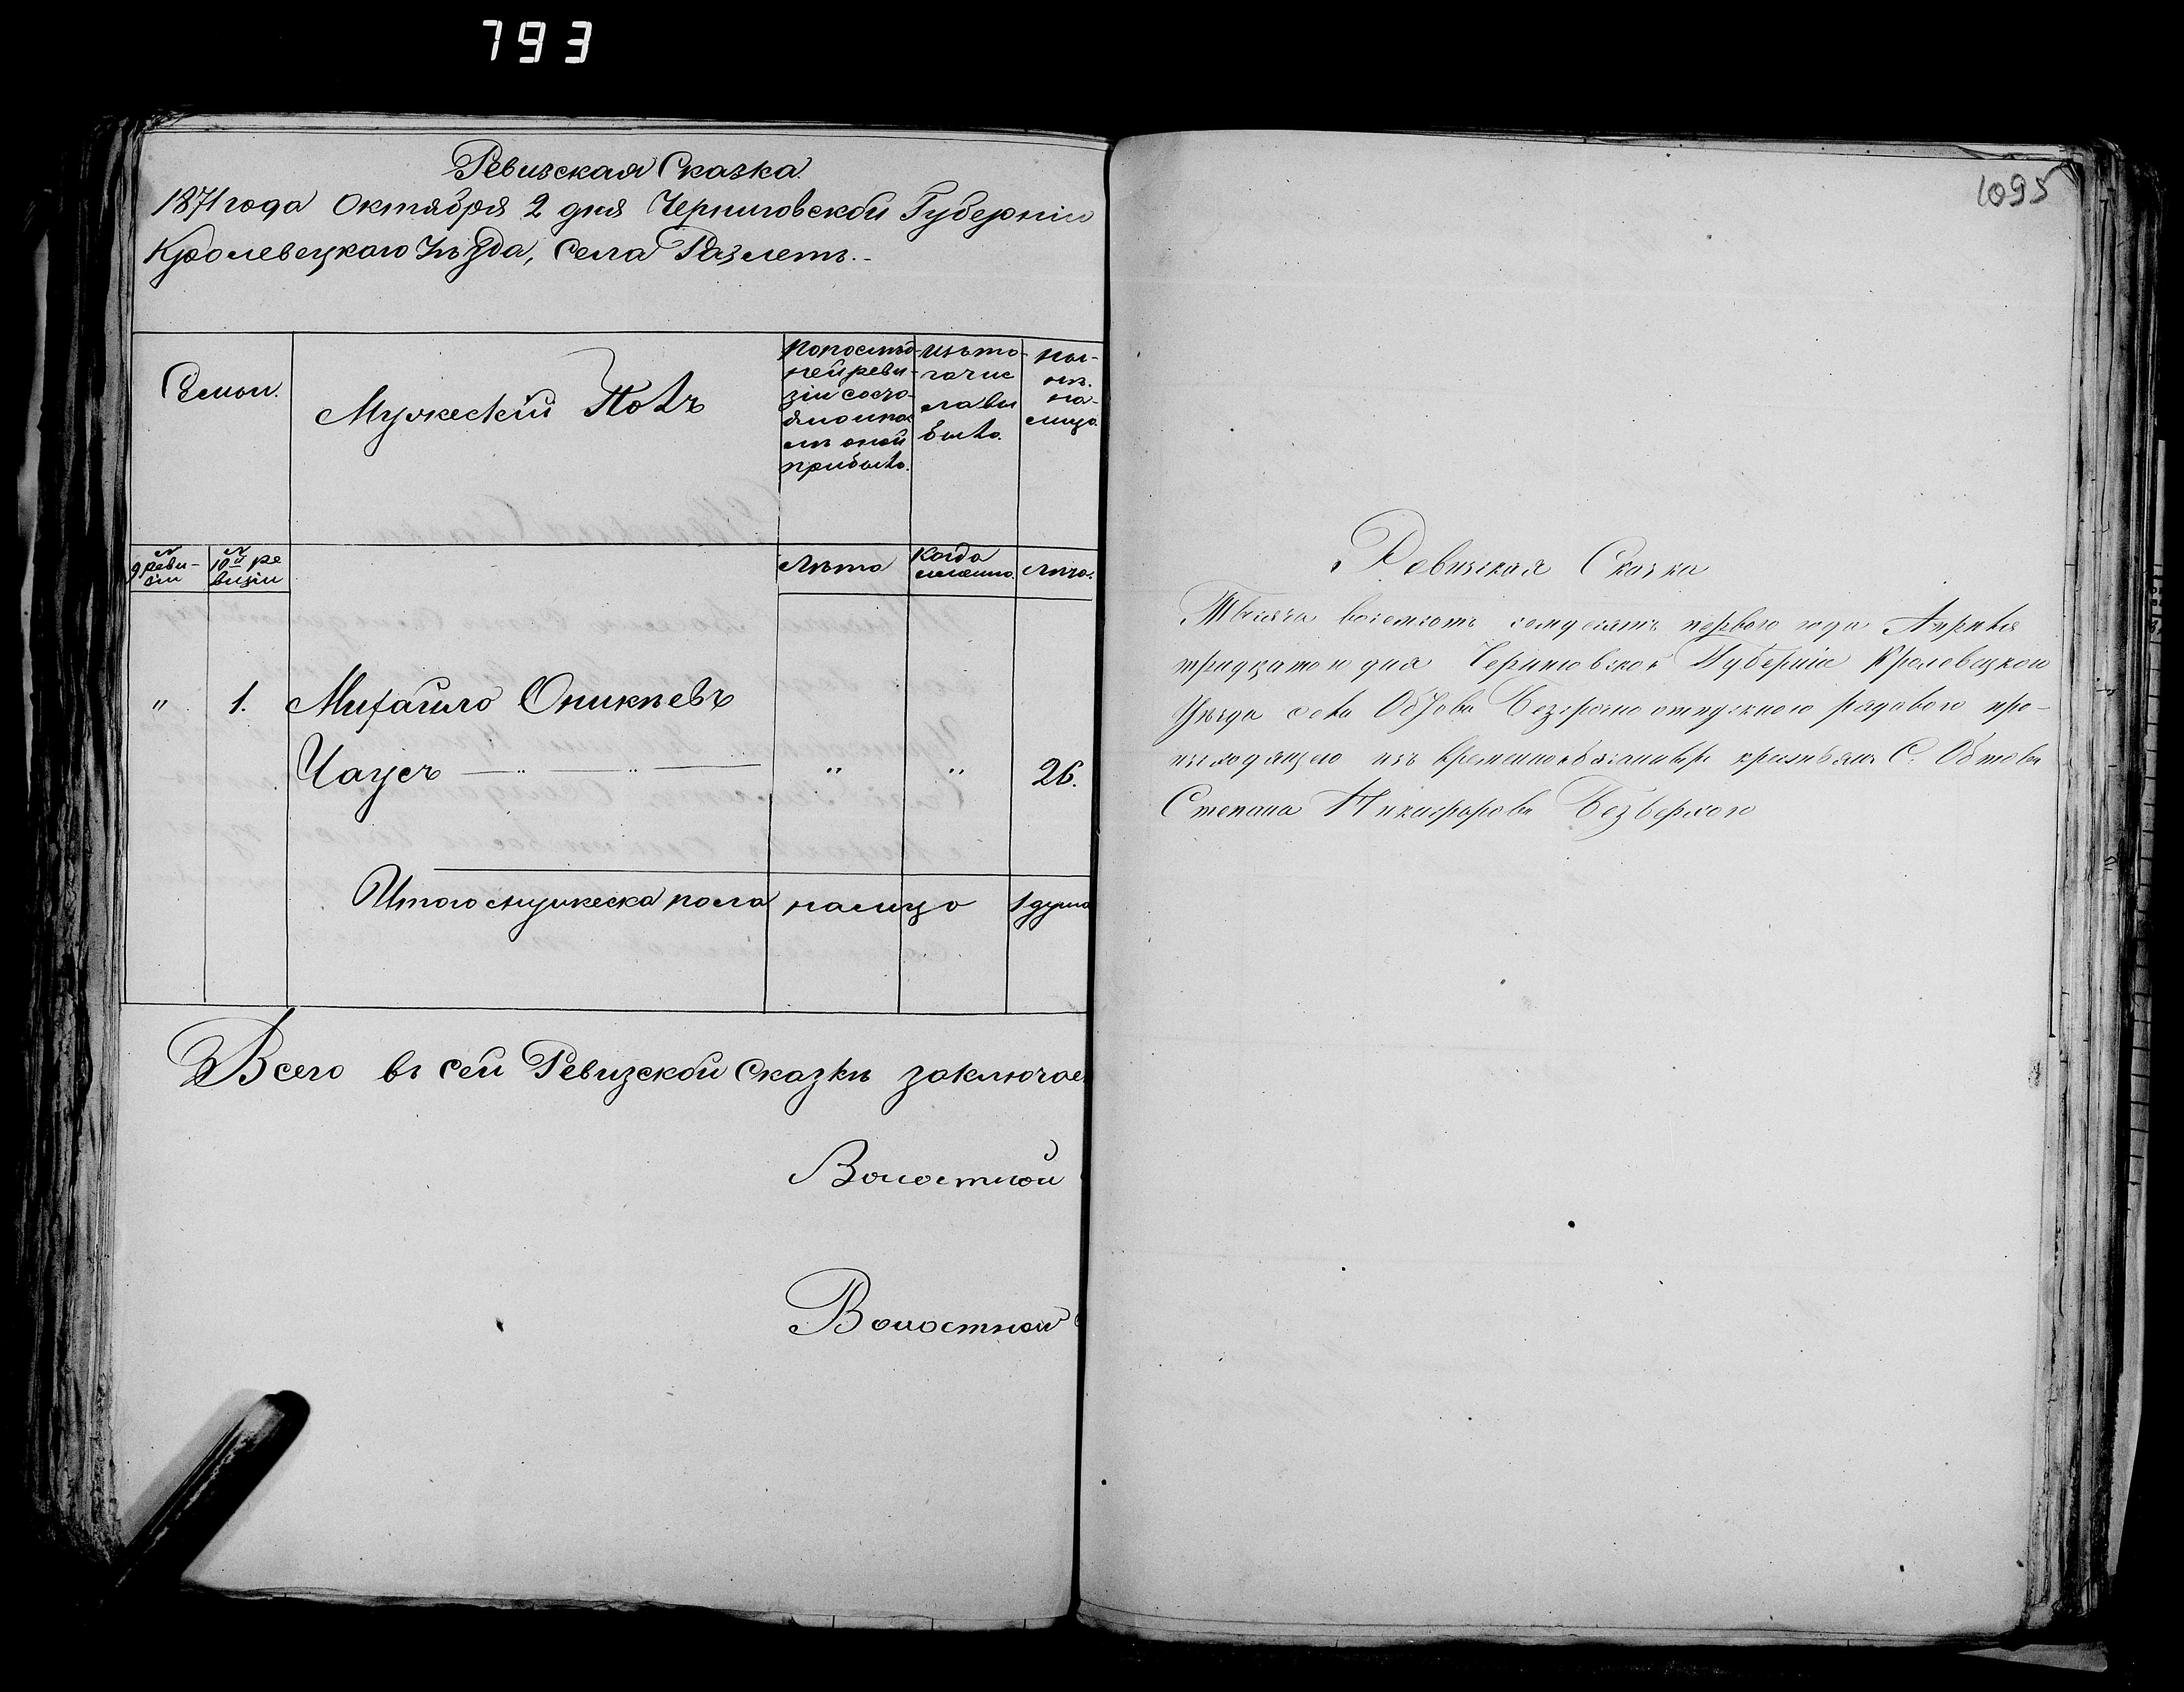 793
Ревизская Сказка
1871 года Октября 2 дня Черниговской Губерніи
Кролевецкаго Уѣзда, села Разлетъ.-
Семьи.
Мужескій Полъ
Попослѣд-
ней реви-
зіи состо-
яло и по-
слѣ оной
прибыло.
Изъ то-
го чис
ла вы
было.
Ны-
нѣ.
на-
лицо.
№
9 реви-
зіи
№
10й ре
визіи
Лѣта
Когда
именно.
Лѣта.
" 1. Михайло Оникѣевъ
Чаусъ — " — " — " " 26.
Итого мужеска пола налицо 1 душа
Всего въ сей Ревизской Сказкѣ заключае
Волостной
Волостной
1095
Ревизская Сказка
Тысяча восемсотъ семдесятъ первого года Апрѣля
тридцатого дня Черниговской Губерніи Кролевецкого
Уѣзда села Обтова Безсрочно отпускного рядового про-
изходящего изъ временнообязанныхъ крестьянъ С. Обтова
Степана Никифорова Безверхого